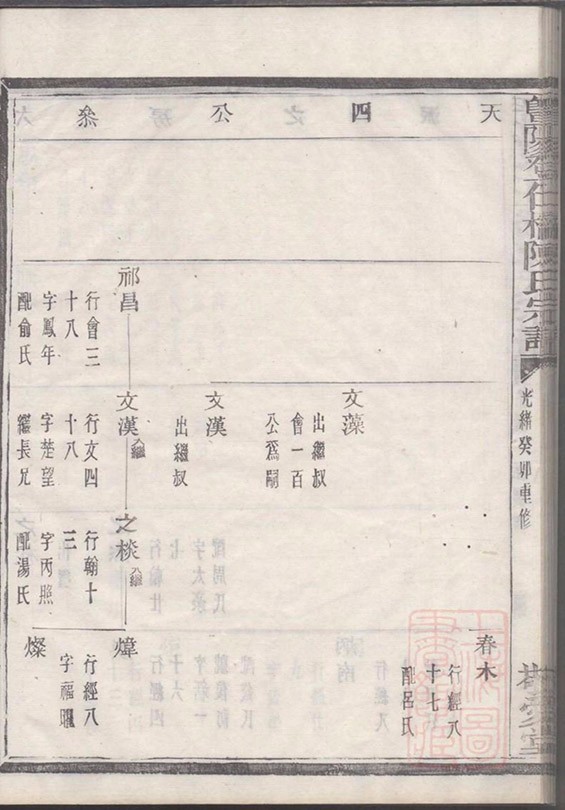 天四公叅
光緒癸卯重修
春木
行經八
十七
配呂氏
文藻
出繼叔
會一百
公爲嗣
文漢
出繼叔
祁昌
行會三
十八
字鳳年
配俞氏
文漢
入繼
行文四
十八
字楚望
繼長兄
之棪
入繼
行翰十
三
字丙照
配湯氏
煒
行經八
字福曜
燦